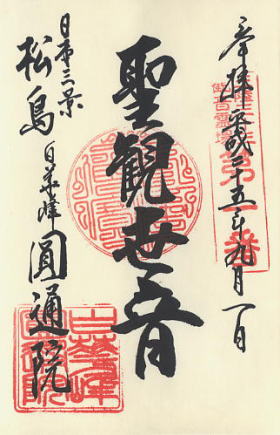 奉拝 平成二十五年九月一日
聖観世音
日本三景
松島 白華峰 圓通院
白華峰